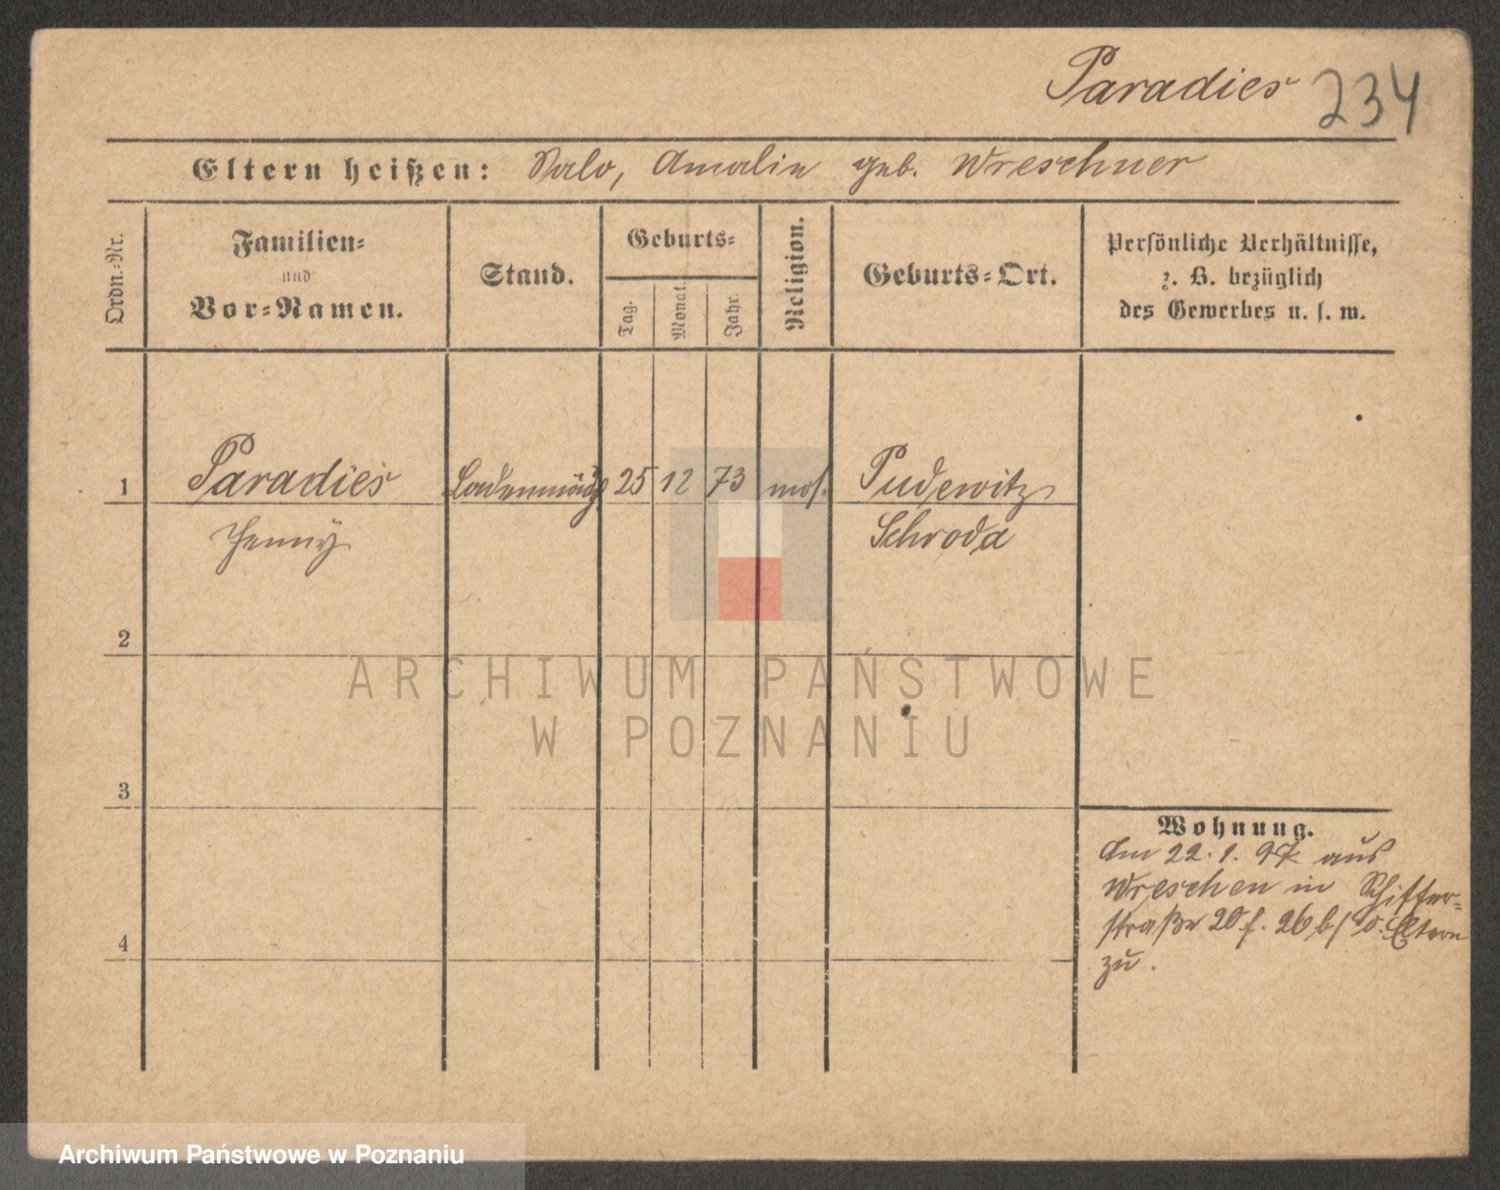 Paradies 234
Eltern heißen: Salo, Amalie geb. Wreschner
Ordn.-Nr.
Familien-
und
Vor-Namen.
Stand.
Geburts-
Tag.
Monat.
Jahr.
Religion.
Geburts-Ort.
Persönliche Verhältnisse,
z. B. bezüglich
des Gewerbes u. s. w.
1 Paradies Ladenmädch 25 12 73 mos. Pudewitz
Jenny Schroda
2
3
4
Wohnung.
Am 22.1.97 aus
Wreschen in Schiffer-
straße 20 f. 26 b/ d. Eltern
zu.
ARCHIWUM PAŃSTWOWE
W POZNANIU
Archiwum Państwowe w Poznaniu